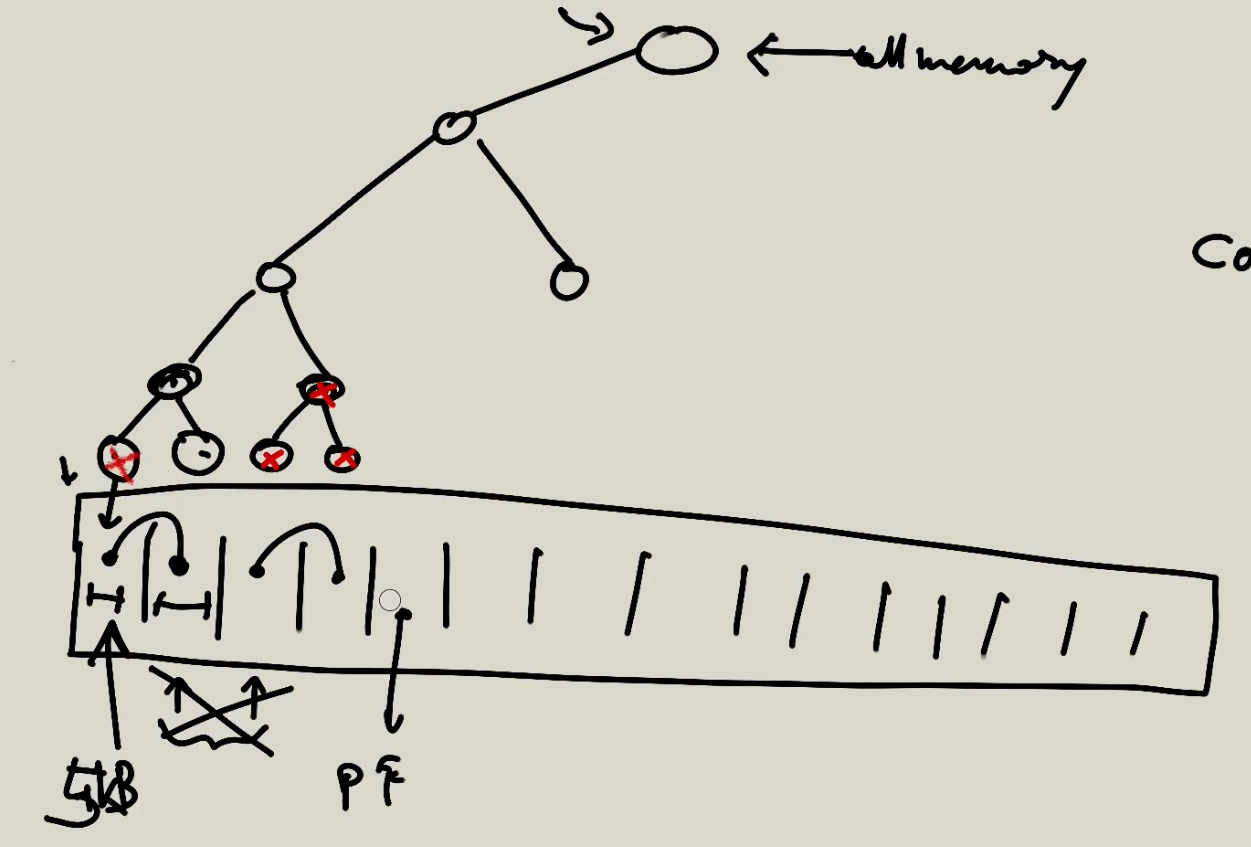 all memory
Co
4kB
PF